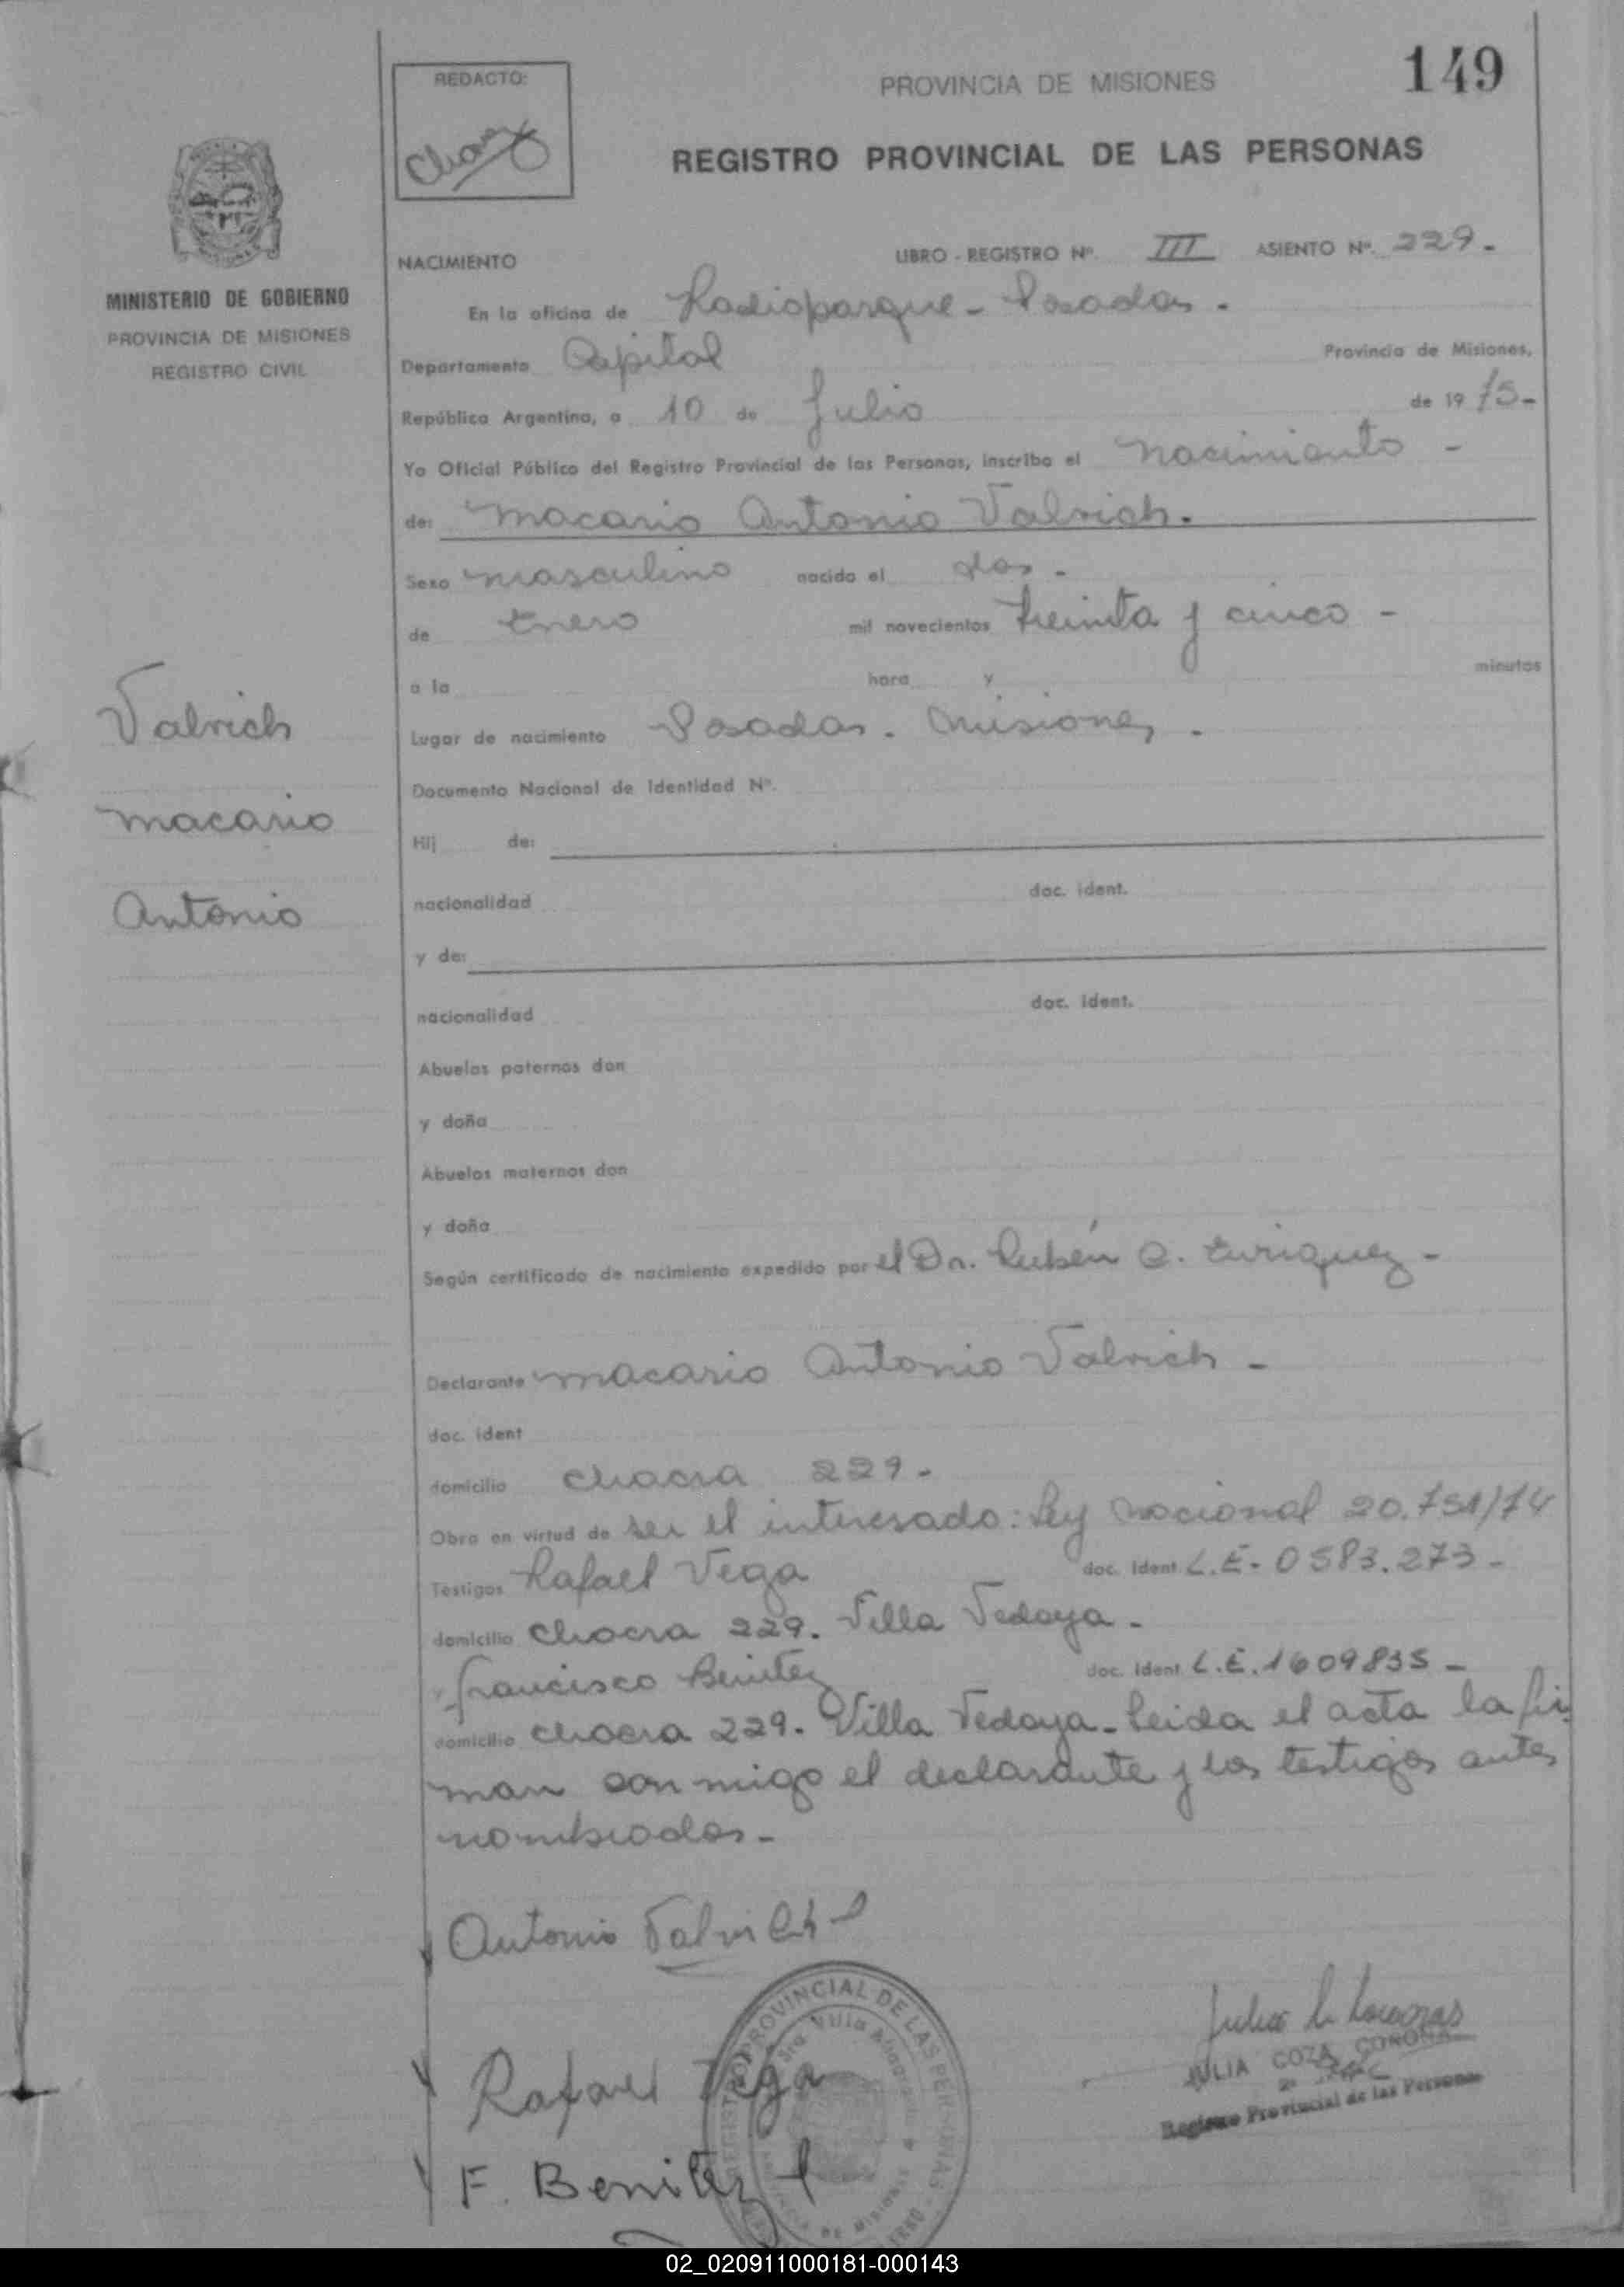 149
REDACTO:
Chavez
PROVINCIA DE MISIONES
REGISTRO PROVINCIAL DE LAS PERSONAS
MINISTERIO DE GOBIERNO
PROVINCIA DE MISIONES
REGISTRO CIVIL
NACIMIENTO LIBRO - REGISTRO Nº. III ASIENTO Nº. 229.-
En la oficina de Radioparque - Posadas.
Departamento Capital Provincia de Misiones,
República Argentina, a 10 de Julio de 19 75-
Yo Oficial Público del Registro Provincial de las Personas, inscribo el nacimiento -
de: Macario Antonio Valrich.
Sexo masculino nacido el dos.
de Enero mil novecientos treinta y cinco -
a la hora y minutos
Valrich
Macario
Antonio
Lugar de nacimiento Posadas. Misiones.
Documento Nacional de Identidad Nº.
Hij de:
nacionalidad doc. ident.
y de:
nacionalidad doc. ident.
Abuelos paternos don
y doña
Abuelos maternos don
y doña
Según certificado de nacimiento expedido por el Dr. Rubén C. Enriquez -
Declarante Macario Antonio Valrich -
doc. ident
domicilio Chacra 229-
Obra en virtud de ser el interesado: Ley nacional 20.751/74
Testigos Rafael Vega doc. ident L.E- 0583.273-
domicilio Chacra 229. Villa Vedoya -
y Francisco Benitez doc. ident L.E. 1609835 -
domicilio Chacra 229. Villa Vedoya - Leida el acta la fir
man con migo el declarante y los testigos antes
nombrados-
Antonio Valrich
Rafael Vega
F. Benitez
REGISTRO PROVINCIAL DE LAS PERSONAS
JULIA COZA CORONA
Registro Provincial de las Personas
02_020911000181-000143